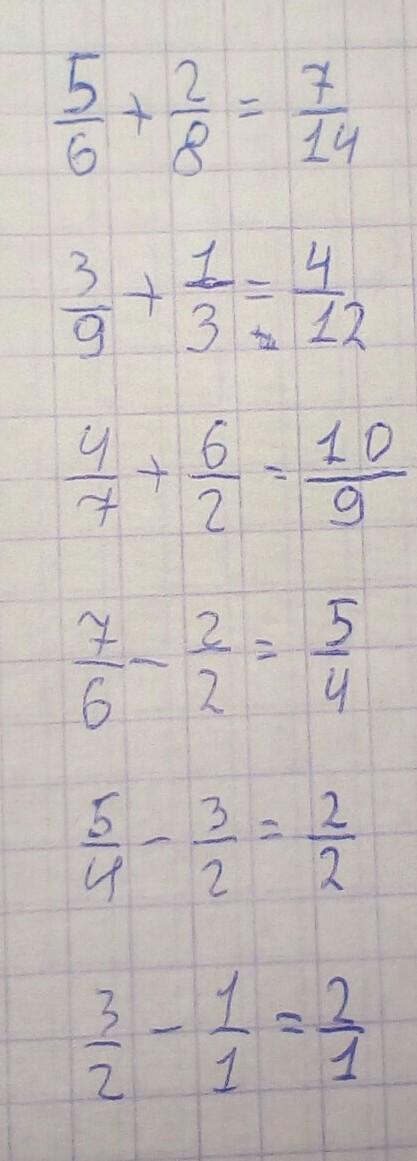 5/6 + 2/8 = 7/14
3/9 + 1/3 = 4/12
4/7 + 6/2 = 10/9
7/6 - 2/2 = 5/4
5/4 - 3/2 = 2/2
3/2 - 1/1 = 2/1